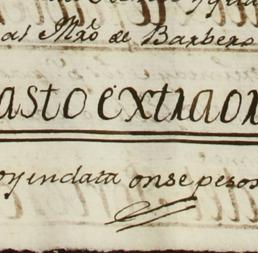 al Mrõ de Barbero
asto extraor
oy en data onse pesos